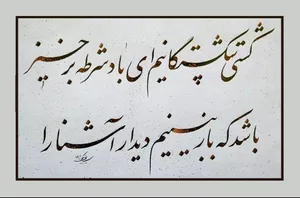 کشتی شکستگانیم ای باد شرطه برخیز
باشد که باز بینیم دیدار آشنا را